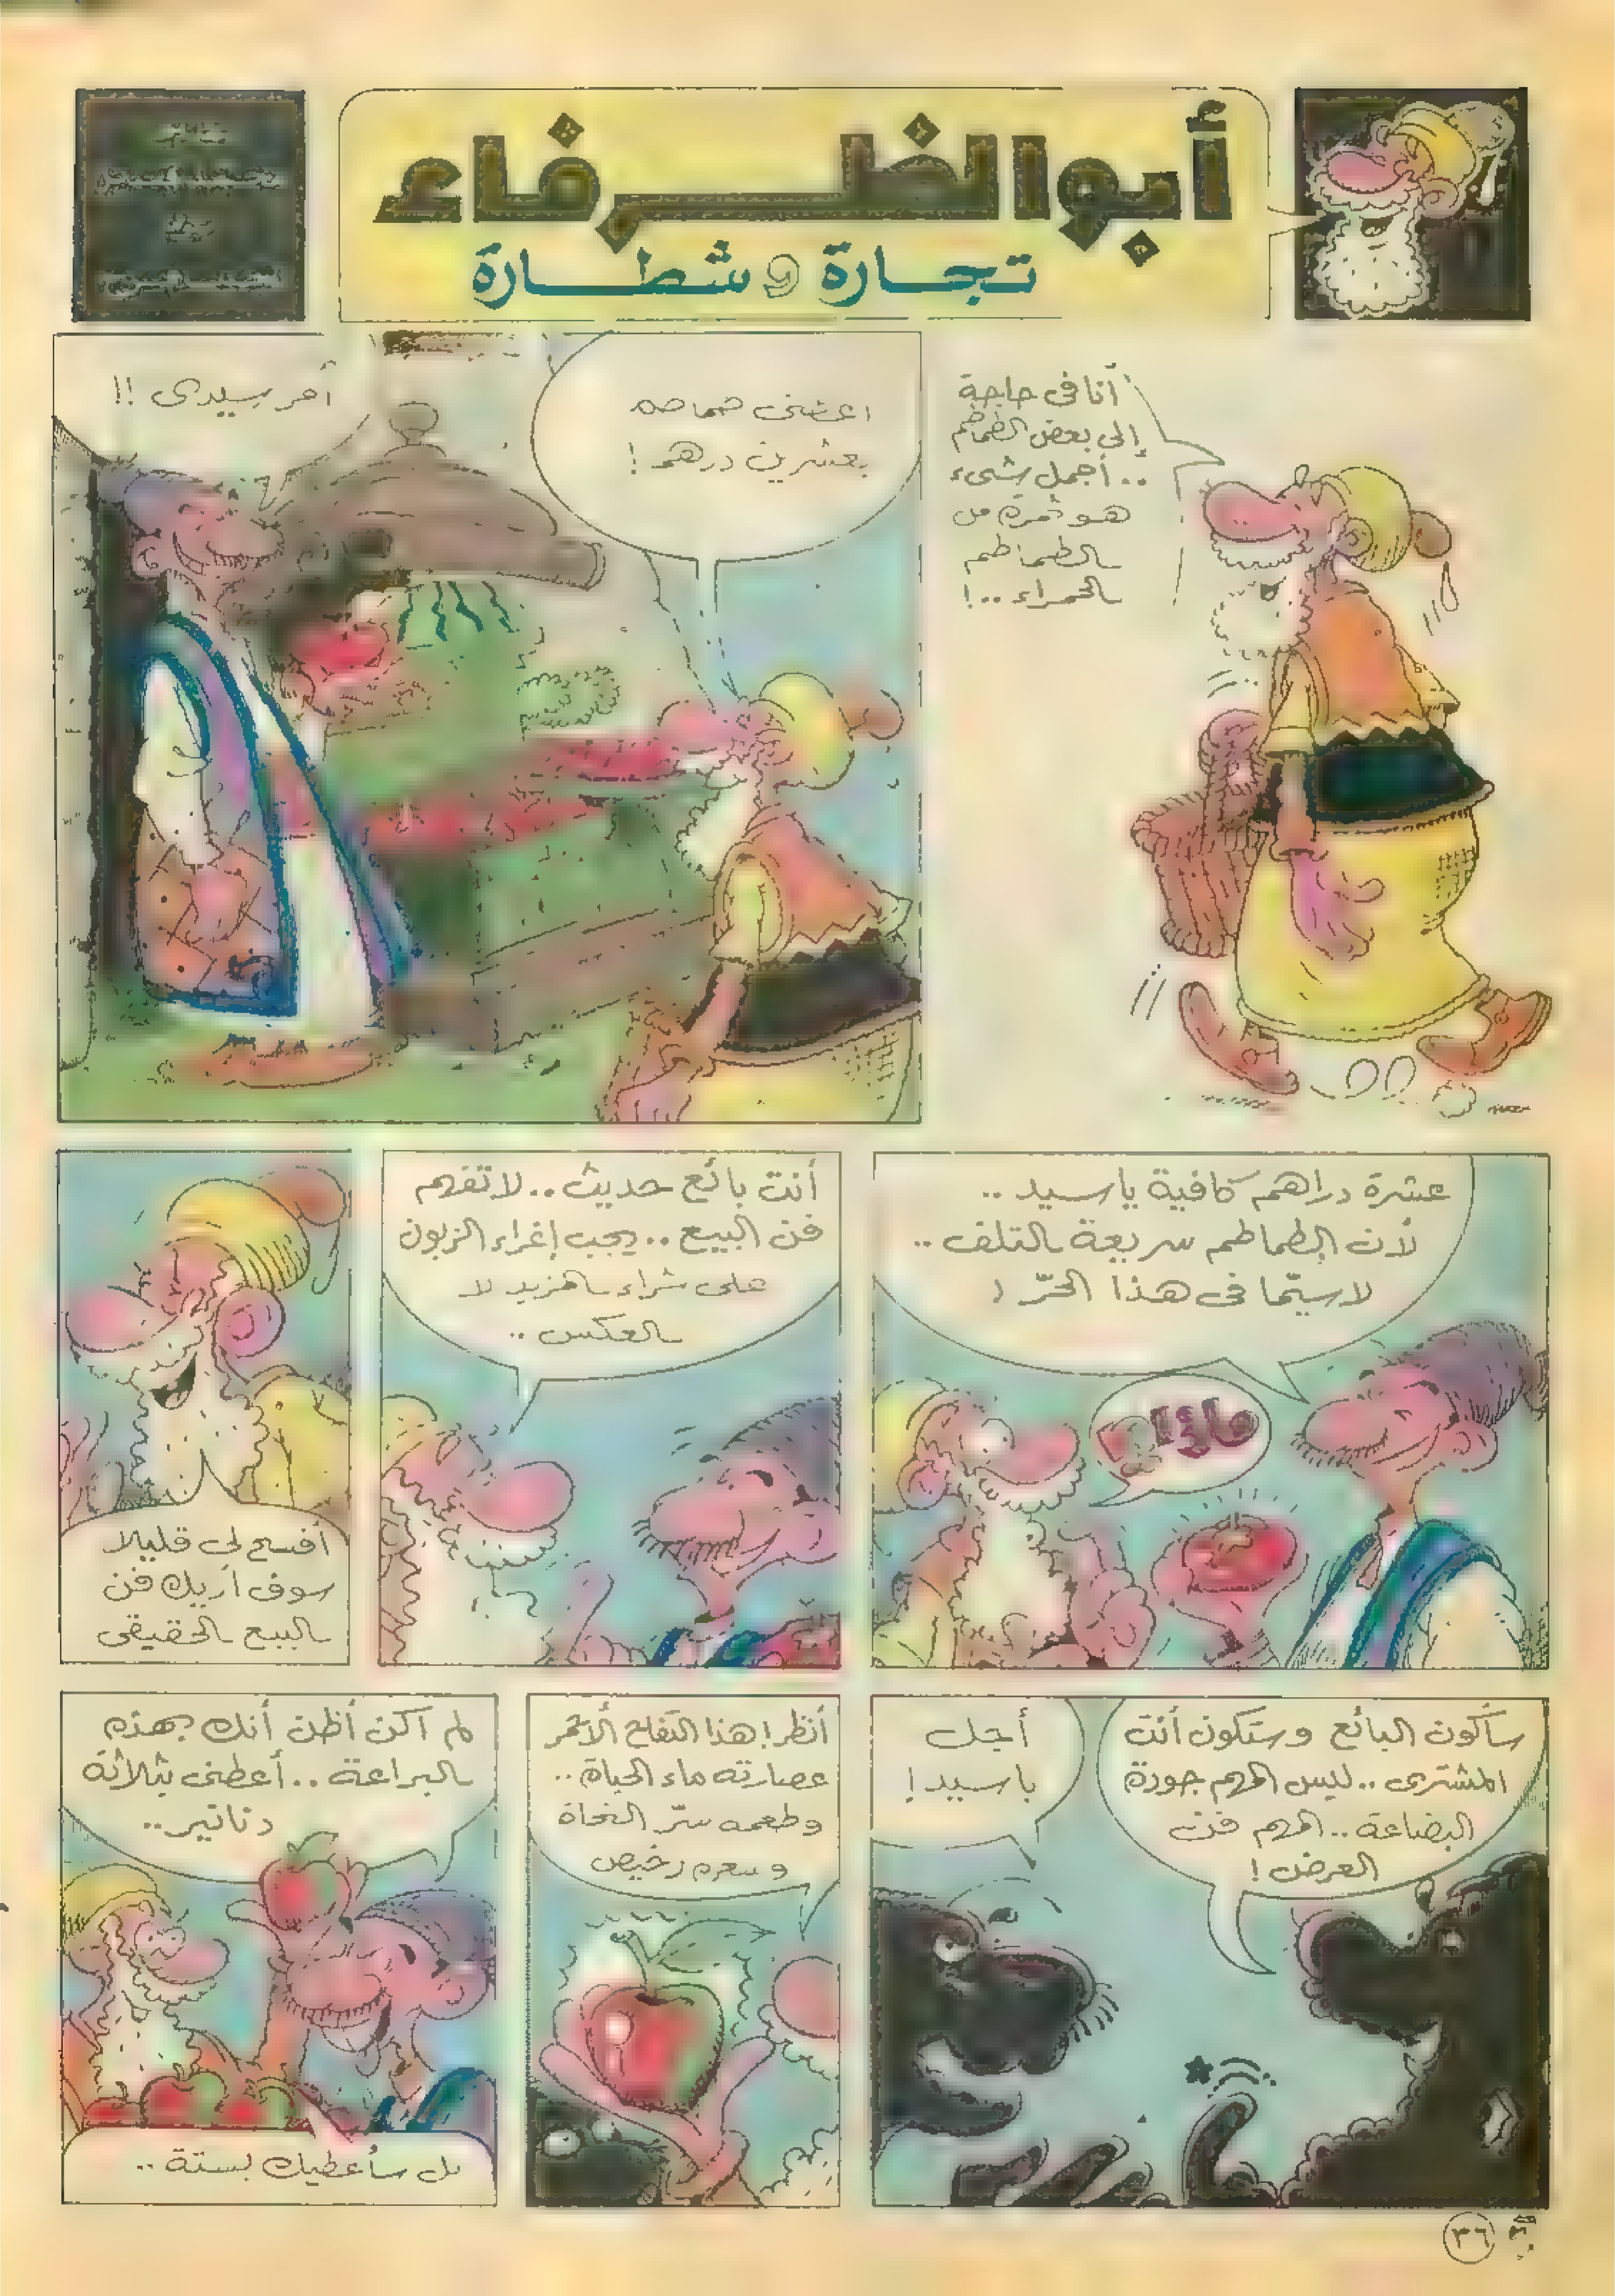 أبوالظرفاء
تجارة و شطارة
أنا فى حاجة
إلى بعض الطماطم
.. أجمل شىء
هو ثمرة من
الطماطم
الحمراء ..!
بعشرين درهم !
أمر سيدى !!
عشرة دراهم كافية ياسيد ..
لأن الطماطم سريعة التلف ..
لاسيّما فى هذا الحرّ !
ماذا؟
أنت بائع حديث .. لا تفهم
فن البيع .. يجب إغراء الزبون
على شراء المزيد لا
العكس ..
أفسح لى قليلا
سوف أريك فن
البيع الحقيقى
سأكون البائع وستكون أنت
المشترى .. ليس المهم جودة
البضاعة .. المهم فن
العرض !
أجل
ياسيد !
أنظر ! هذا التفاح الأحمر
عصارته ماء الحياة ..
وطعمه سرّ النجاة
وسعره رخيص
لم أكن أظن أنك بهذه
البراعة .. أعطنى بثلاثة
دنانير ..
بل سأعطيك بستة ..
٣٦